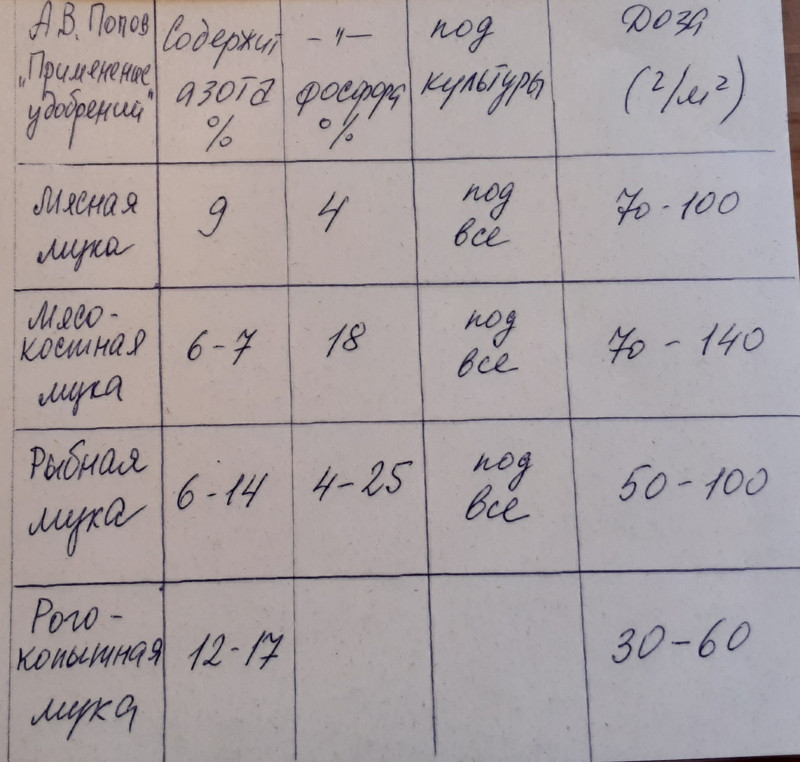 А.В. Попов Содержит -"- под Доза
"Применение азота фосфора культуры (г/м²)
удобрений" % %
Мясная 9 4 под 70-100
мука все
Мясо- под
костная 6-7 18 все 70-140
мука
Рыбная 6-14 4-25 под 50-100
мука все
Рого-
копытная 12-17 30-60
мука